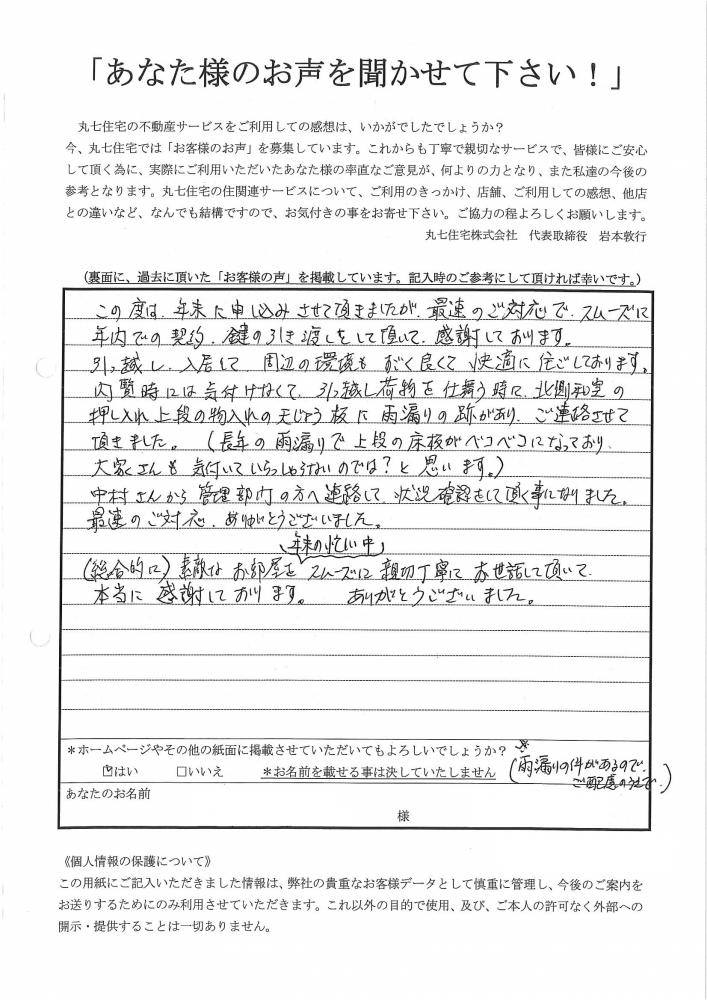 「あなた様のお声を聞かせて下さい！」
丸七住宅の不動産サービスをご利用しての感想は、いかがでしたでしょうか？
今、丸七住宅では「お客様のお声」を募集しています。これからも丁寧で親切なサービスで、皆様にご安心
して頂く為に、実際にご利用いただいたあなた様の率直なご意見が、何よりの力となり、また私達の今後の
参考となります。丸七住宅の住関連サービスについて、ご利用のきっかけ、店舗、ご利用しての感想、他店
との違いなど、なんでも結構ですので、お気付きの事をお寄せ下さい。ご協力の程よろしくお願いします。
丸七住宅株式会社　代表取締役　岩本敦行
（裏面に、過去に頂いた「お客様の声」を掲載しています。記入時のご参考にして頂ければ幸いです。）
この度は、年末に申し込みさせて頂きましたが、最速のご対応で、スムーズに
年内での契約、鍵の引き渡しをして頂いて、感謝しております。
引っ越し、入居して　周辺の環境も　すごく良くて　快適に　住ごしております。
内覧時には気付けなくて、引っ越し荷物を仕舞う時に、北側和室の
押し入れ、上段の物入れの天じょう板に　雨漏りの跡があり、ご連絡させて
頂きました。（長年の雨漏りで上段の床板がベコベコになっており、
大家さんも　気付いていらっしゃらないのでは？と　思います。）
中村さんから　管理部門の方へ連絡して、状況確認をして頂く事になりました。
最速のご対応、ありがとうございました。
年末の忙しい中
（総合的に）素敵な　お部屋を　スムーズに　親切丁寧に　お世話して頂いて、
本当に　感謝しております。　ありがとうございました。
＊ホームページやその他の紙面に掲載させていただいてもよろしいでしょうか？ ※
☑はい　□いいえ　＊お名前を載せる事は決していたしません （雨漏りの件があるので、
ご配慮のうえで。）
あなたのお名前
様
《個人情報の保護について》
この用紙にご記入いただきました情報は、弊社の貴重なお客様データとして慎重に管理し、今後のご案内を
お送りするためにのみ利用させていただきます。これ以外の目的で使用、及び、ご本人の許可なく外部への
開示・提供することは一切ありません。